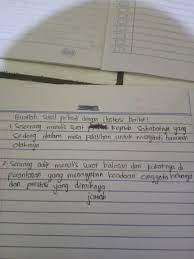 Buatlah surat pribadi dengan ilustrasi berikut!
1. Seseorang menulis surat kepada sahabatnya yang
sedang dalam masa pelatihan untuk mengikuti
olahraga
2. Seorang adik menulis surat balasan dari kakaknya di
perantauan yang menanyakan keadaan anggota keluarga
dan yang
jawab